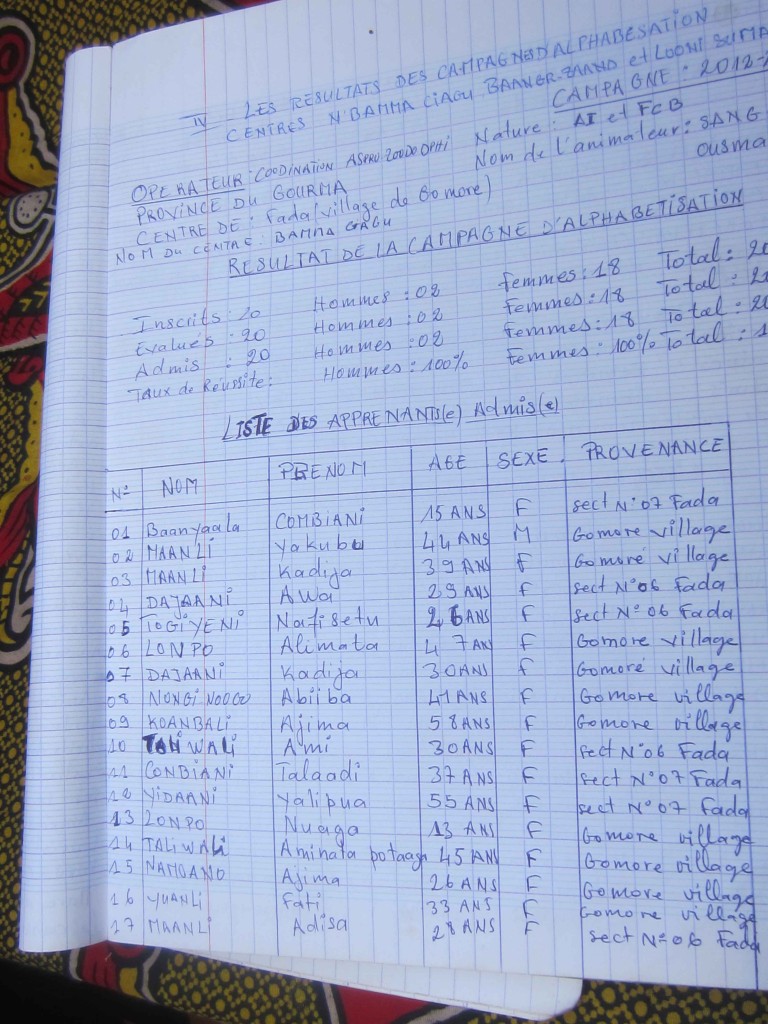 IV LES RESULTATS DES CAMPAGNES D'ALPHABESATION
CENTRES N'BAMMA CIAGU BAANGR-ZAAND et LOONI SUMA
CAMPAGNE : 2012-
OPERATEUR : COODINATION ASPRU ZOODO OPHI Nature : AI et FCB
PROVINCE DU GOURMA Nom de l'animateur : SANG
CENTRE DE : Fada (village de Gomore) Ousma
NOM DU CENTRE : BAMMA GAGU
RESULTAT DE LA CAMPAGNE D'ALPHABETISATION
Inscrits : 20 Hommes : 02 femmes : 18 Total : 20
Evalués : 20 Hommes : 02 Femmes : 18 Total : 20
Admis : 20 Hommes : 02 Femmes : 18 Total : 20
Taux de Réussite : Hommes : 100% Femmes : 100% Total : 1
LISTE DES APPRENANTS(e) Admis(e)
N° NOM PRENOM AGE SEXE PROVENANCE
01 Baanyaala COMBIANI 15 ANS F sect N°07 Fada
02 MAANLI yakubu 44 ANS M Gomore village
03 MAANLI Kadija 39 ANS F Gomoré village
04 DAJAANI Awa 29 ANS F sect N°06 Fada
05 TOGIYENI Nafisetu 26 ANS F sect N°06 Fada
06 LONPO Alimata 47 AN F Gomore village
07 DAJAANI Kadija 30 ANS F Gomoré village
08 NONGINOOGO Abiiba 41 ANS F Gomore village
09 KOANBALI Ajima 58 ANS F Gomore village
10 TALIWALI Ami 30 ANS F sect N°06 Fada
11 CONBIANI Talaadi 37 ANS F sect N°07 Fada
12 YIDAANI yalipua 55 ANS F sect N°07 Fada
13 LONPO Nuaga 13 ANS F Gomore village
14 TALIWALI Aminata potaaga 45 AN F Gomore village
15 NAMOANO Ajima 26 ANS F Gomore village
16 YUANLI Fati 33 ANS F Gomore village
17 MAANLI Adisa 28 ANS F sect N°06 Fada